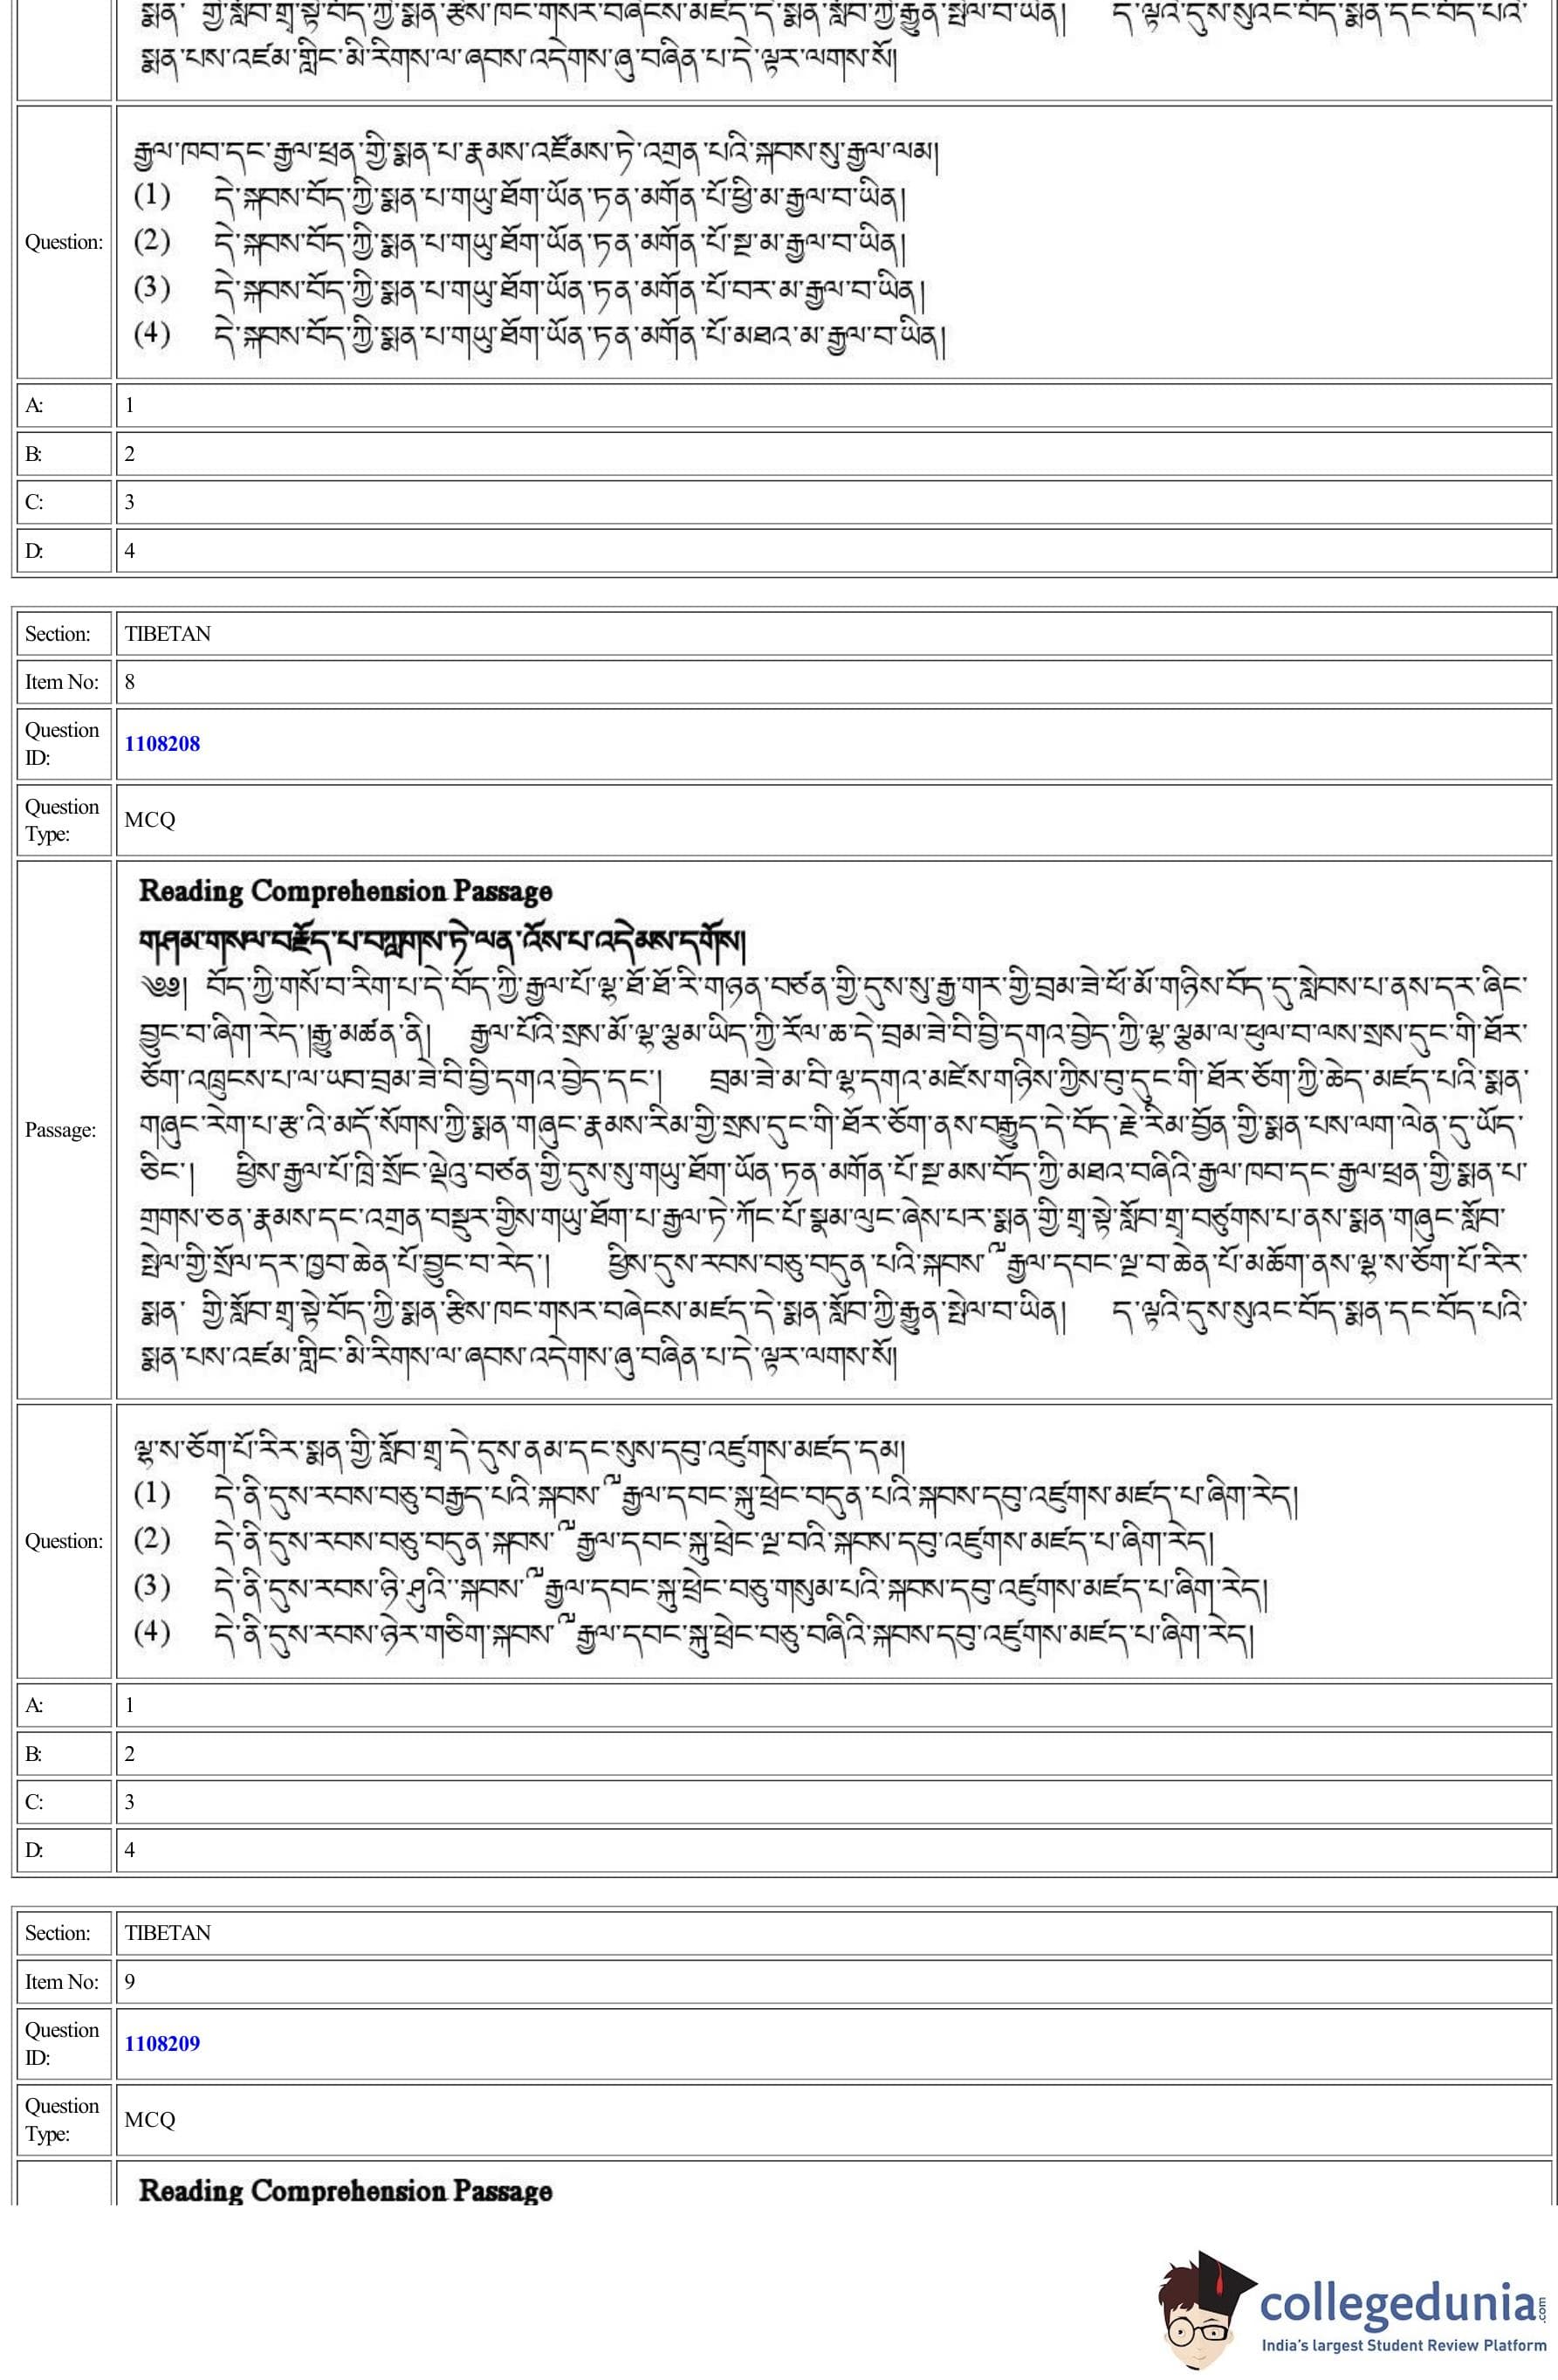 སྨན་ གྱི་སློབ་གྲྭ་སྟེ་བོད་ཀྱི་སྨན་རྩིས་ཁང་གསར་བཞེངས་མཛད་དེ་སྨན་སློབ་ཀྱི་རྒྱུན་སྤེལ་བ་ཡིན། ད་ལྟའི་དུས་སུའང་བོད་སྨན་དང་བོད་པའི་
སྨན་པས་འཛམ་གླིང་མི་རིགས་ལ་ཞབས་འདེགས་ཞུ་བཞིན་པ་དེ་ལྟར་ལགས་སོ།
Question:
རྒྱལ་ཁབ་དང་རྒྱལ་ཕྲན་གྱི་སྨན་པ་རྣམས་འཛོམས་ཏེ་འགྲན་པའི་སྐབས་སུ་རྒྱལ་ལམ།
(1) དེ་སྐབས་བོད་ཀྱི་སྨན་པ་གཡུ་ཐོག་ཡོན་ཏན་མགོན་པོ་ཕྱི་མ་རྒྱལ་བ་ཡིན།
(2) དེ་སྐབས་བོད་ཀྱི་སྨན་པ་གཡུ་ཐོག་ཡོན་ཏན་མགོན་པོ་སྔ་མ་རྒྱལ་བ་ཡིན།
(3) དེ་སྐབས་བོད་ཀྱི་སྨན་པ་གཡུ་ཐོག་ཡོན་ཏན་མགོན་པོ་བར་མ་རྒྱལ་བ་ཡིན།
(4) དེ་སྐབས་བོད་ཀྱི་སྨན་པ་གཡུ་ཐོག་ཡོན་ཏན་མགོན་པོ་མཐའ་མ་རྒྱལ་བ་ཡིན།
A: 1
B: 2
C: 3
D: 4
Section: TIBETAN
Item No: 8
Question ID: 1108208
Question Type: MCQ
Passage:
Reading Comprehension Passage
གཤམ་གསལ་བརྗོད་པ་བཀླགས་ཏེ་ལན་འོས་པ་འདེམས་དགོས།
༄༅། བོད་ཀྱི་གསོ་བ་རིག་པ་དེ་བོད་ཀྱི་རྒྱལ་པོ་ལྷ་ཐོ་ཐོ་རི་གཉན་བཙན་གྱི་དུས་སུ་རྒྱ་གར་གྱི་བྲམ་ཟེ་ཕོ་མོ་གཉིས་བོད་དུ་སླེབས་པ་ནས་དར་ཞིང་
བྱུང་བ་ཞིག་རེད་།རྒྱུ་མཚན་ནི། རྒྱལ་པོའི་སྲས་མོ་ལྷ་ལྕམ་ཡིད་ཀྱི་རོལ་ཆ་དེ་བྲམ་ཟེ་བི་བྱི་དགའ་བྱེད་ཀྱི་ལྷ་ལྕམ་ལ་ཕུལ་བ་ལས་སྲས་དུང་གི་ཐོར་
ཅོག་འཁྲུངས་པ་ལ་ཡབ་བྲམ་ཟེ་བི་བྱི་དགའ་བྱེད་དང་། བྲམ་ཟེ་མ་བི་ལྷ་དགའ་མཛེས་གཉིས་ཀྱིས་བུ་དུང་གི་ཐོར་ཅོག་ཀྱི་ཆེད་མཛད་པའི་སྨན་
གཞུང་རེག་པ་རྩ་འི་མདོ་སོགས་ཀྱི་སྨན་གཞུང་རྣམས་རིམ་གྱི་སྲས་དུང་གི་ཐོར་ཅོག་ནས་བརྒྱུད་དེ་བོད་རྗེ་རིམ་བྱོན་གྱི་སྨན་པས་ལག་ལེན་དུ་ཡོད་
ཅིང་། ཕྱིས་རྒྱལ་པོ་ཁྲི་སྲོང་ལྡེའུ་བཙན་གྱི་དུས་སུ་གཡུ་ཐོག་ཡོན་ཏན་མགོན་པོ་སྔ་མས་བོད་ཀྱི་མཐའ་བཞིའི་རྒྱལ་ཁབ་དང་རྒྱལ་ཕྲན་གྱི་སྨན་པ་
གྲགས་ཅན་རྣམས་དང་འགྲན་བསྡུར་གྱིས་གཡུ་ཐོག་པ་རྒྱལ་ཏེ་ཀོང་པོ་སྨན་ལུང་ཞེས་པར་སྨན་གྱི་གྲྭ་སྟེ་སློབ་གྲྭ་བཙུགས་པ་ནས་སྨན་གཞུང་སློབ་
སྤེལ་གྱི་སྲོལ་དར་ཁྱབ་ཆེན་པོ་བྱུང་བ་རེད་། ཕྱིས་དུས་རབས་བཅུ་བདུན་པའི་སྐབས་ ྸརྒྱལ་དབང་ལྔ་བ་ཆེན་པོ་མཆོག་ནས་ལྷ་ས་ཅོག་པོ་རིར་
སྨན་ གྱི་སློབ་གྲྭ་སྟེ་བོད་ཀྱི་སྨན་རྩིས་ཁང་གསར་བཞེངས་མཛད་དེ་སྨན་སློབ་ཀྱི་རྒྱུན་སྤེལ་བ་ཡིན། ད་ལྟའི་དུས་སུའང་བོད་སྨན་དང་བོད་པའི་
སྨན་པས་འཛམ་གླིང་མི་རིགས་ལ་ཞབས་འདེགས་ཞུ་བཞིན་པ་དེ་ལྟར་ལགས་སོ།
Question:
ལྷ་ས་ཅོག་པོ་རིར་སྨན་གྱི་སློབ་གྲྭ་དེ་དུས་ནམ་དང་སུས་དབུ་འཛུགས་མཛད་དམ།
(1) དེ་ནི་དུས་རབས་བཅུ་བརྒྱད་པའི་སྐབས་ ྸརྒྱལ་དབང་སྐུ་ཕྲེང་བདུན་པའི་སྐབས་དབུ་འཛུགས་མཛད་པ་ཞིག་རེད།
(2) དེ་ནི་དུས་རབས་བཅུ་བདུན་སྐབས་ ྸརྒྱལ་དབང་སྐུ་ཕྲེང་ལྔ་བའི་སྐབས་དབུ་འཛུགས་མཛད་པ་ཞིག་རེད།
(3) དེ་ནི་དུས་རབས་ཉི་ཤུའི་་སྐབས་ ྸརྒྱལ་དབང་སྐུ་ཕྲེང་བཅུ་གསུམ་པའི་སྐབས་དབུ་འཛུགས་མཛད་པ་ཞིག་རེད།
(4) དེ་ནི་དུས་རབས་ཉེར་གཅིག་སྐབས་ ྸརྒྱལ་དབང་སྐུ་ཕྲེང་བཅུ་བཞིའི་སྐབས་དབུ་འཛུགས་མཛད་པ་ཞིག་རེད།
A: 1
B: 2
C: 3
D: 4
Section: TIBETAN
Item No: 9
Question ID: 1108209
Question Type: MCQ
Reading Comprehension Passage
collegedunia.com
India's largest Student Review Platform